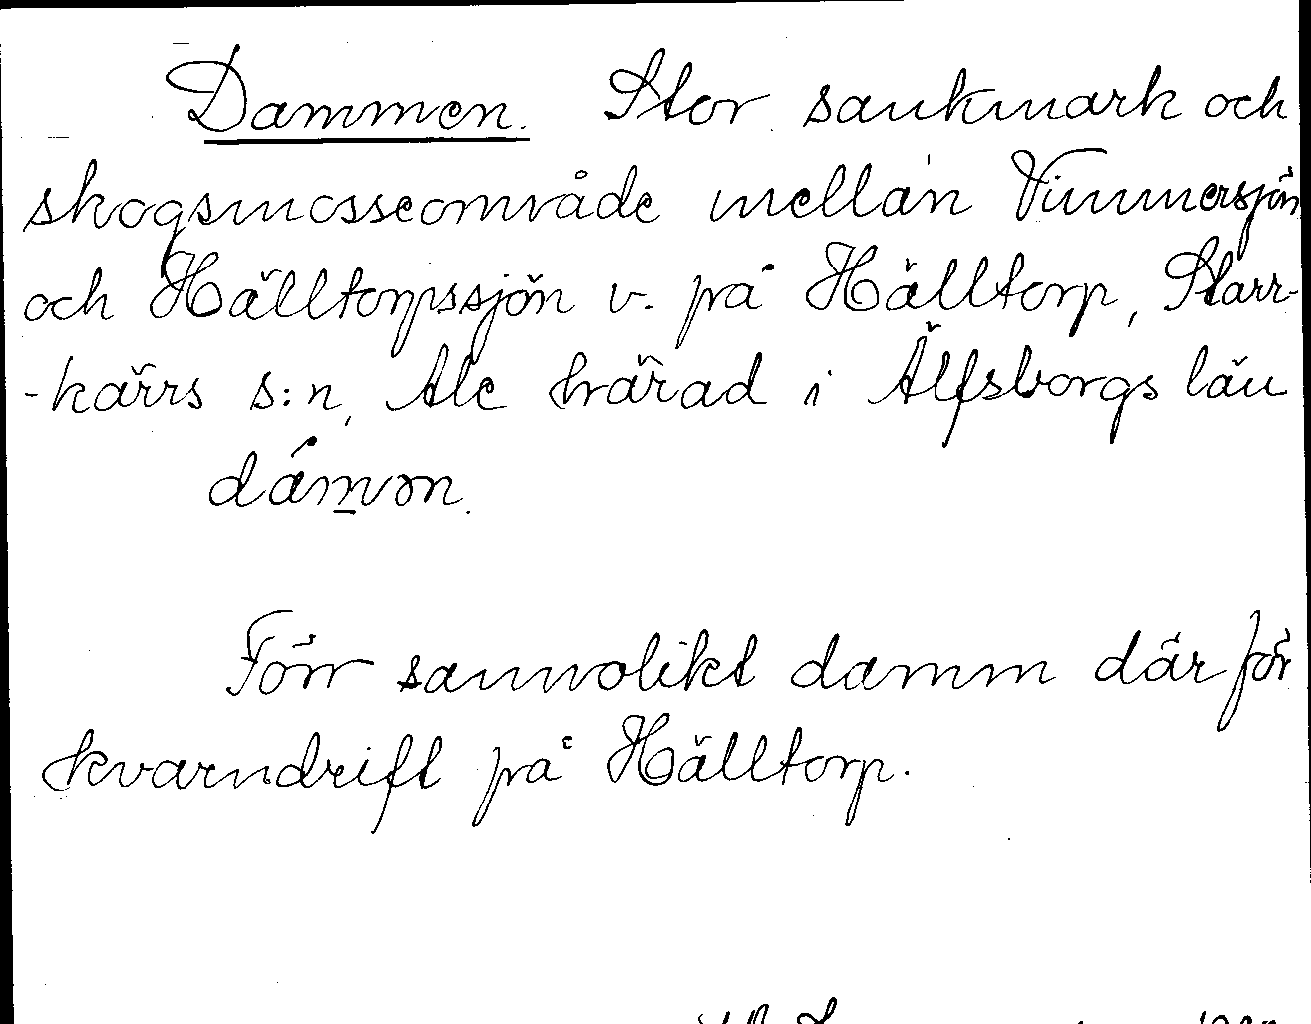 Dammen. Stor sankmark och
skogsmosseområde mellan Vimmersjön
och Hälltorpssjön v. på Hälltorp, Starr-
-kärrs s:n, Ale härad i Älfsborgs län
dámən.
Förr sannolikt damm där för
kvarndrift på Hälltorp.